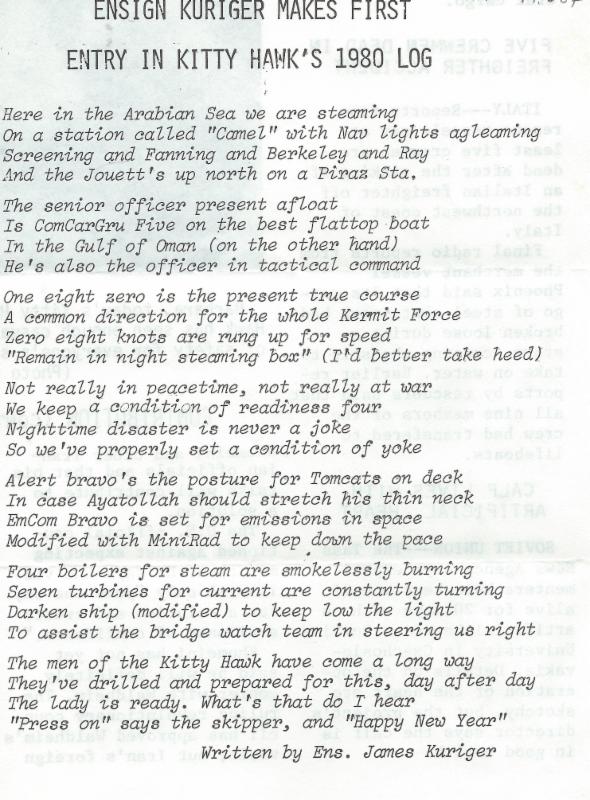 ENSIGN KURIGER MAKES FIRST
ENTRY IN KITTY HAWK'S 1980 LOG
Here in the Arabian Sea we are steaming
On a station called "Camel" with Nav lights agleaming
Screening and Fanning and Berkeley and Ray
And the Jouett's up north on a Piraz Sta.
The senior officer present afloat
Is ComCarGru Five on the best flattop boat
In the Gulf of Oman (on the other hand)
He's also the officer in tactical command
One eight zero is the present true course
A common direction for the whole Kermit Force
Zero eight knots are rung up for speed
"Remain in night steaming box" (I'd better take heed)
Not really in peacetime, not really at war
We keep a condition of readiness four
Nighttime disaster is never a joke
So we've properly set a condition of yoke
Alert bravo's the posture for Tomcats on deck
In case Ayatollah should stretch his thin neck
EmCom Bravo is set for emissions in space
Modified with MiniRad to keep down the pace
Four boilers for steam are smokelessly burning
Seven turbines for current are constantly turning
Darken ship (modified) to keep low the light
To assist the bridge watch team in steering us right
The men of the Kitty Hawk have come a long way
They've drilled and prepared for this, day after day
The lady is ready. What's that do I hear
"Press on" says the skipper, and "Happy New Year"
Written by Ens. James Kuriger